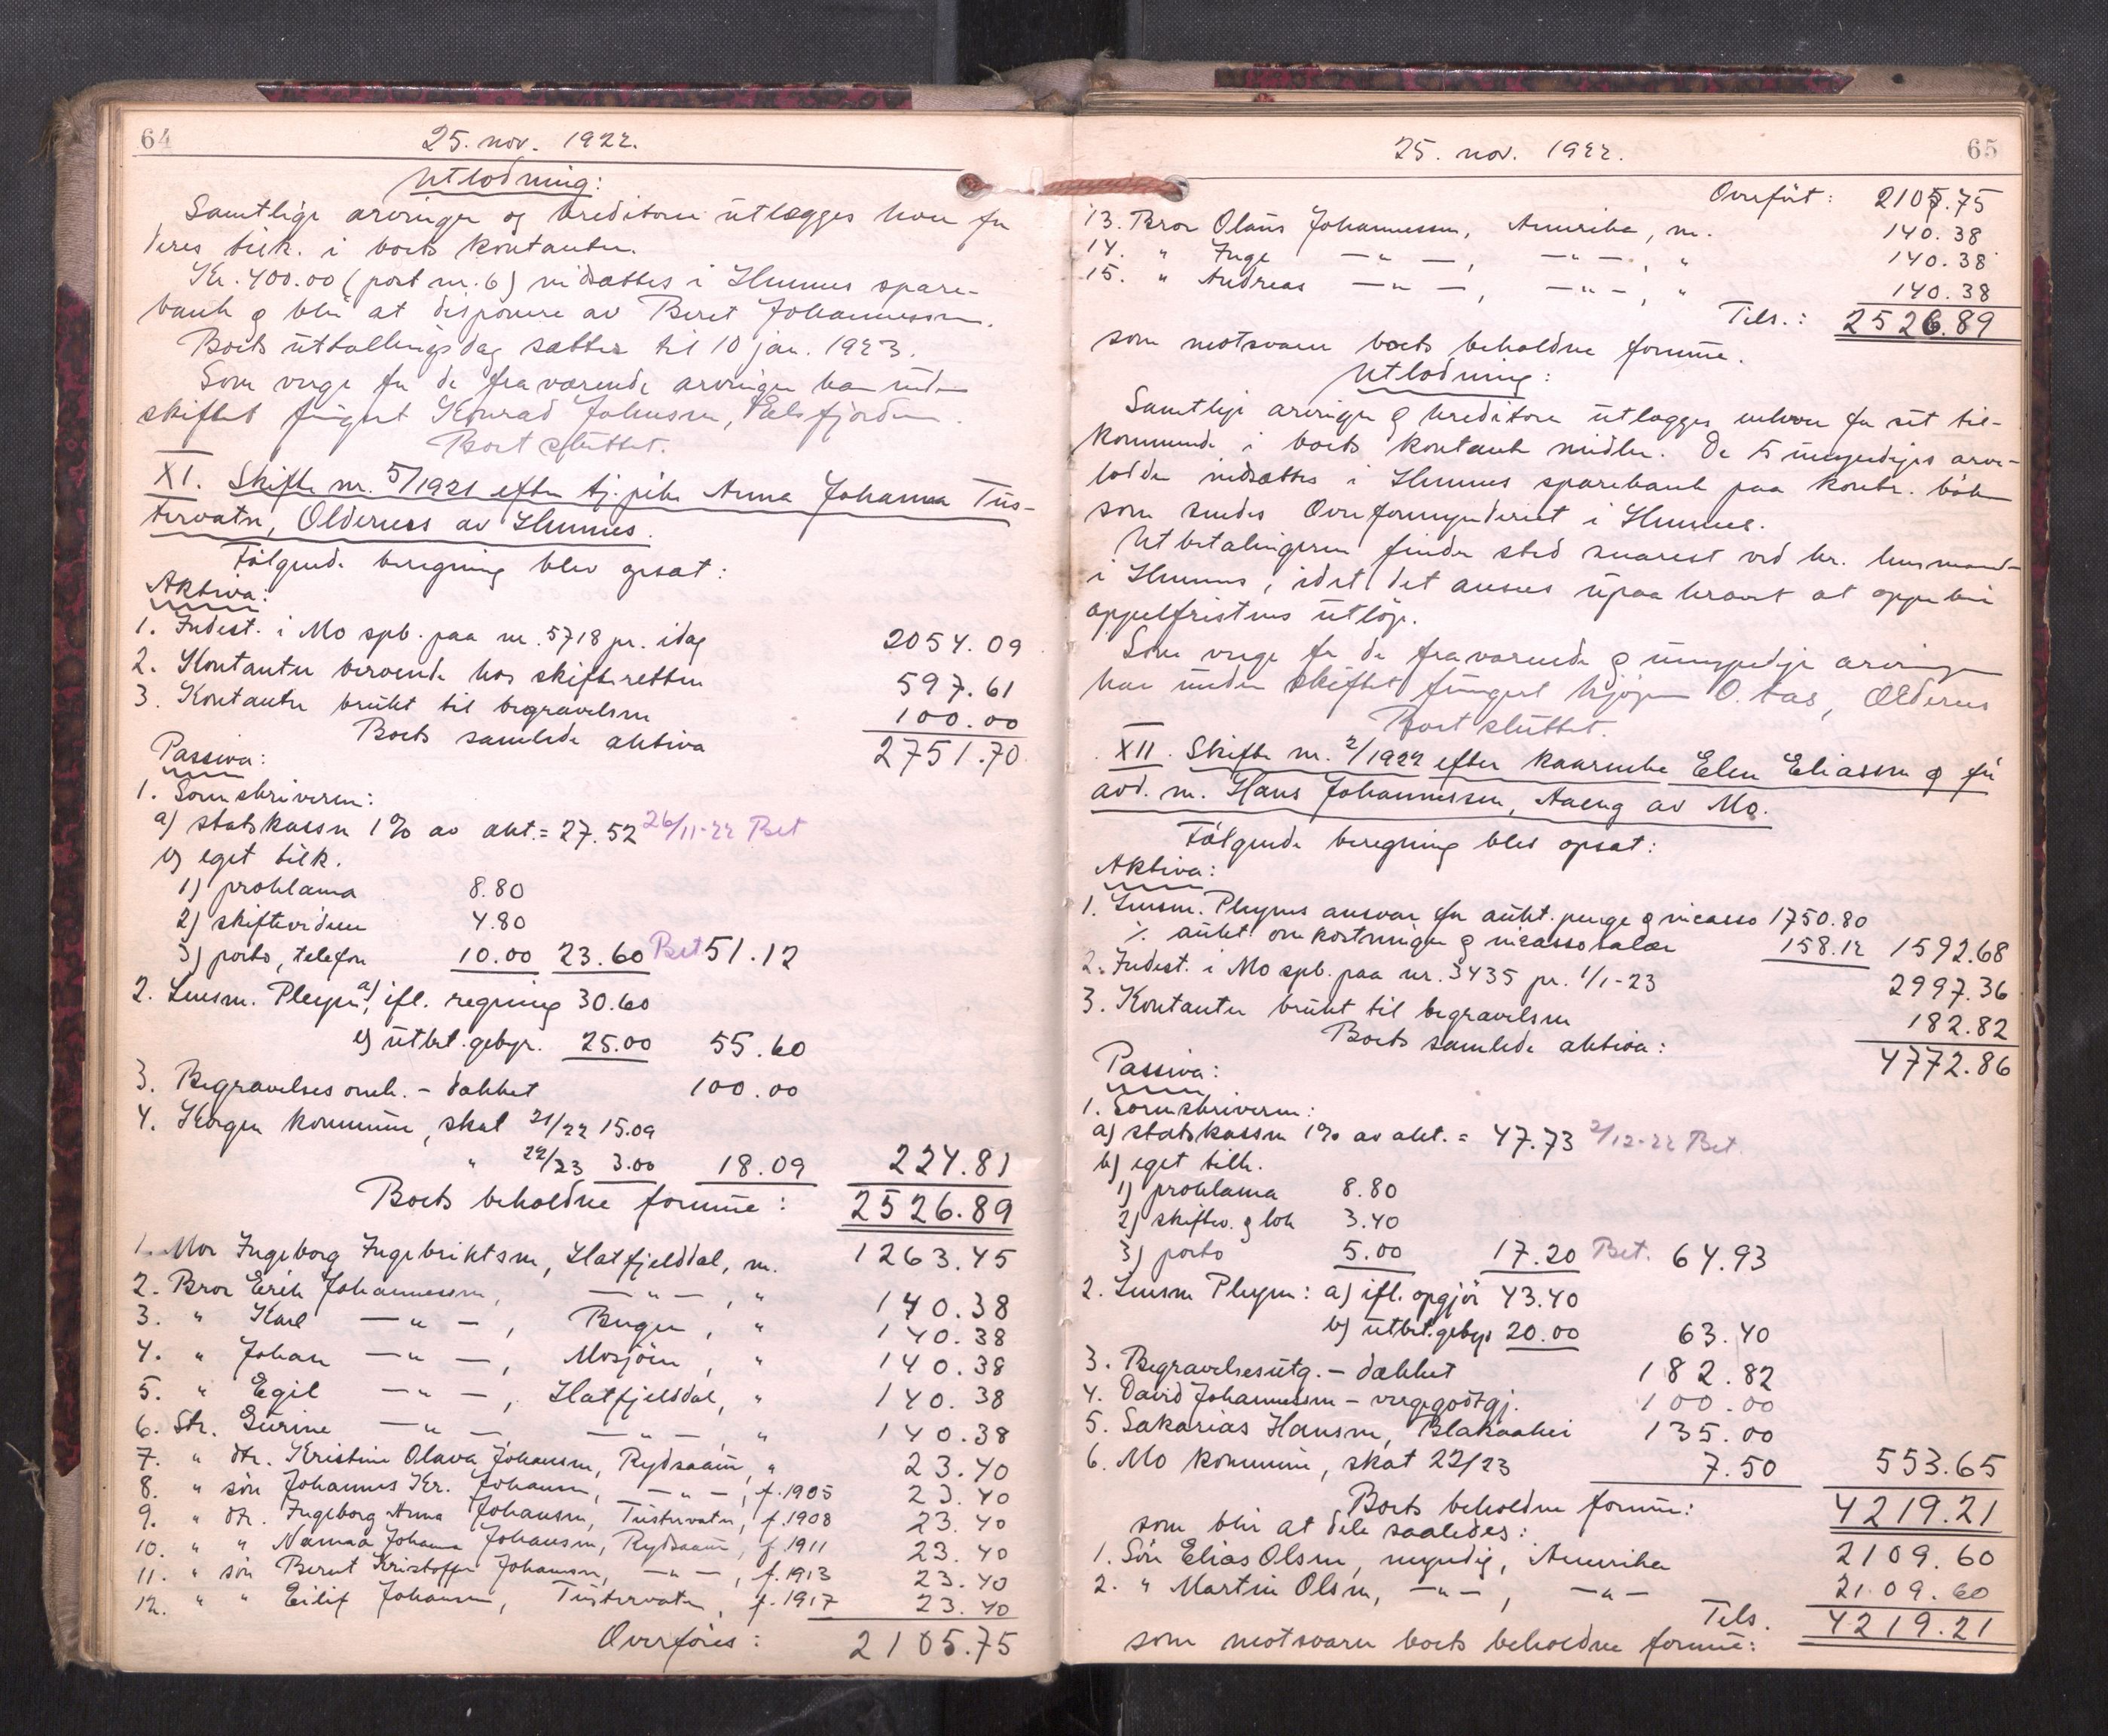 64
25. nov. 1922.
Utlodning:
Samtlige arvinger og kreditorer utlægges hver for
deres tilk. i boets kontanter.
Kr. 400.00 (post nr. 6) nidsættes i Hemnes spare-
bank og blir at disponere av Beret Johannessen.
Boets utbetalingsdag sættes til 10 jan. 1923.
Som verge for de fraværende arvinger har under
skiftet fungert Konrad Johnsen, Elsfjorden.
Boet sluttet.
XI. Skifte nr. 5/1921 efter tj. pike Anna Johanna Tus-
tervatn, Oldernes av Hemnes.
Følgende beregning blev opsat:
Aktiva:
1. Indest. i Mo spb. paa nr. 5718 pr. idag 2054.09
2. Kontanter beroende hos skifteretten 597.61
3. Kontanter brukt til begravelsen 100.00
Boets samlede aktiva 2751.70
Passiva:
1. Sorenskriveren:
a) statskassen 1% av akt. = 27.52 26/11-22 Bet
b) eget tilk.
1) proklama 8.80
2) skiftevidner 4.80
3) porto, telefon 10.00 23.60 Bet 51.12
2. Lensm. Pleym: a) ifl. regning 30.60
b) utbet. gebyr. 25.00 55.60
3. Begravelses omk. - dækket 100.00
4. Korgen kommune, skat 21/22 15.09
" 22/23 3.00 18.09 224.81
Boets beholdne formue: 2526.89
1. Mor Ingeborg Ingebriktsen, Hatfjelddal, m. 1263.45
2. Bror Erik Johannessen, —"—, " 140.38
3. " Karl —"—, Bergen, " 140.38
4. " Johan —"—, Mosjøen, " 140.38
5. " Egil —"—, Hatfjelddal, " 140.38
6. Str. Gurine —"— —"— " 140.38
7. " dtr. Kristine Olava Johansen, Rydsaam, " 23.40
8. " søn Johannes Kr. Johansen, —"—, f. 1905 23.40
9. " dtr. Ingeborg Anna Johansen, Tustervatn, f. 1908 23.40
10. " " Nanna Johanna Johansen, Rydsaam, f. 1911 23.40
11. " søn Bernt Kristoffer Johansen, —"—, f. 1913 23.40
12. " " Eilif Johansen, Tustervatn, f. 1917 23.40
Overføres: 2105.75
25. nov. 1922.
65
Overført: 2105.75
13. Bror Olaus Johannessen, Amerika, m. 140.38
14. " Inge —"—, —"—, " 140.38
15. " Andreas —"—, —"—, " 140.38
Tils.: 2526.89
som motsvarer boets beholdne formue.
Utlodning:
Samtlige arvinger & kreditorer utlægges enhver for sit til-
kommende i boets kontante midler. De 5 umyndiges arve-
lodder nidsættes i Hemnes sparebank paa kontr. bøker
som sendes Overformynderiet i Hemnes.
Utbetalingeren finder sted snarest ved hr. lensmand
i Hemnes, idet det ansees upaakrævet at oppebie
appelfristens utløp.
Som verge for de fraværende & umyndige arvinger
har under skiftet fungert hr. O. Aas, Oldernes
Boet sluttet.
XII. Skifte nr. 2/1922 efter kaarenke Elen Eliassen & før
avd. m. Hans Johannessen, Aaeng av Mo.
Følgende beregning blev opsat:
Aktiva:
1. Lensm. Pleyms ansvar for aukt. penge & incasso 1750.80
÷ aukt. omkostninger & incassosalær 158.12 1592.68
2. Indest. i Mo spb. paa nr. 3435 pr. 1/1-23 2997.36
3. Kontanter brukt til begravelsen 182.82
Boets samlede aktiva: 4772.86
Passiva:
1. Sorenskriveren:
a) statskassen 1% av akt. = 47.73 2/12-22 Bet.
b) eget tilk.
1) proklama 8.80
2) skiftev. & lok 3.40
3) porto 5.00 17.20 Bet. 64.93
2. Lensm Pleym: a) ifl. opgjør 43.40
b) utbet. gebyr 20.00 63.40
3. Begravelsesutg. - dækket 182.82
4. David Johannessen - vergegodtgj. 100.00
5. Sakarias Hansen, Blakaahei 135.00
6. Mo kommune, skat 22/23 7.50 553.65
Boets beholdne formue: 4219.21
som blir at dele saaledes:
1. Søn Elias Olsen, myndig, Amerika 2109.60
2. " Martin Olsen, —"—, —"— 2109.60
Tils. 4219.21
som motsvarer boets beholdne formue: